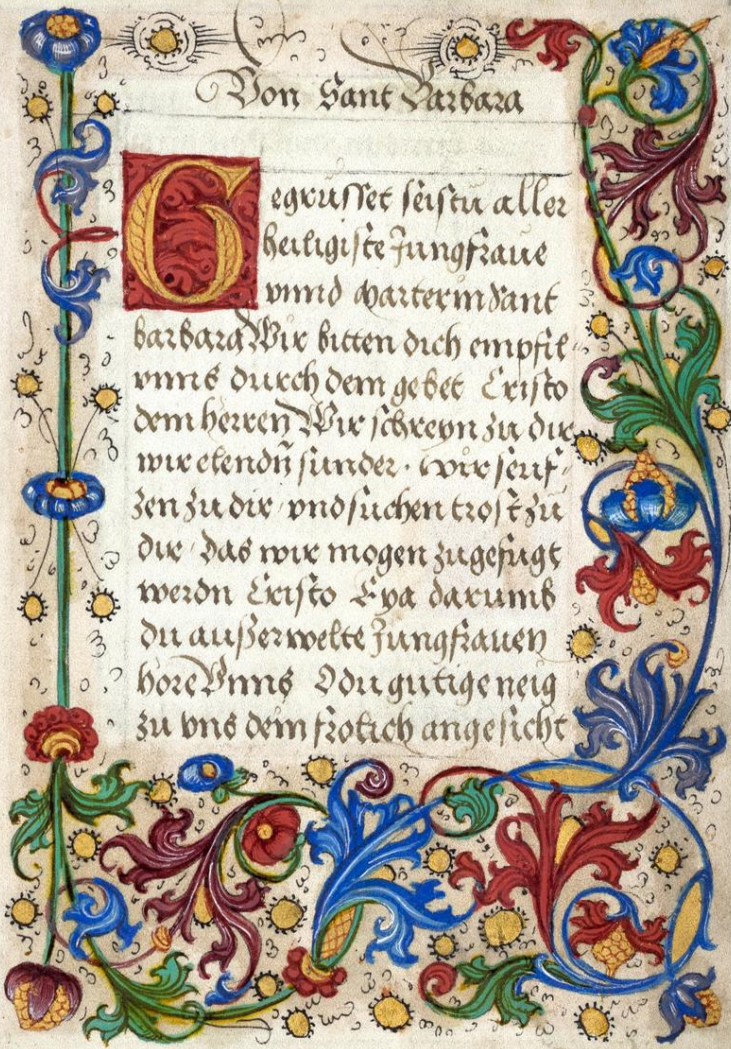 Von Sant Barbara
Gegrusset seistu aller
heiligiste Jungfraue
vnnd Marterin Sant
barbara Wir bitten dich empfil
vnns durch dem gebet Cristo
dem herren Wir schreyn zu dir
wir elendn̄ sunder · wir seuf-
zen zu dir vnd suchen trost zu
dir das wir mogen zugefugt
werdn Cristo Eya darumb
du außerwelte Jungfrauen
hore Vnns O du gutige neig
zu vns dem frolich angesicht